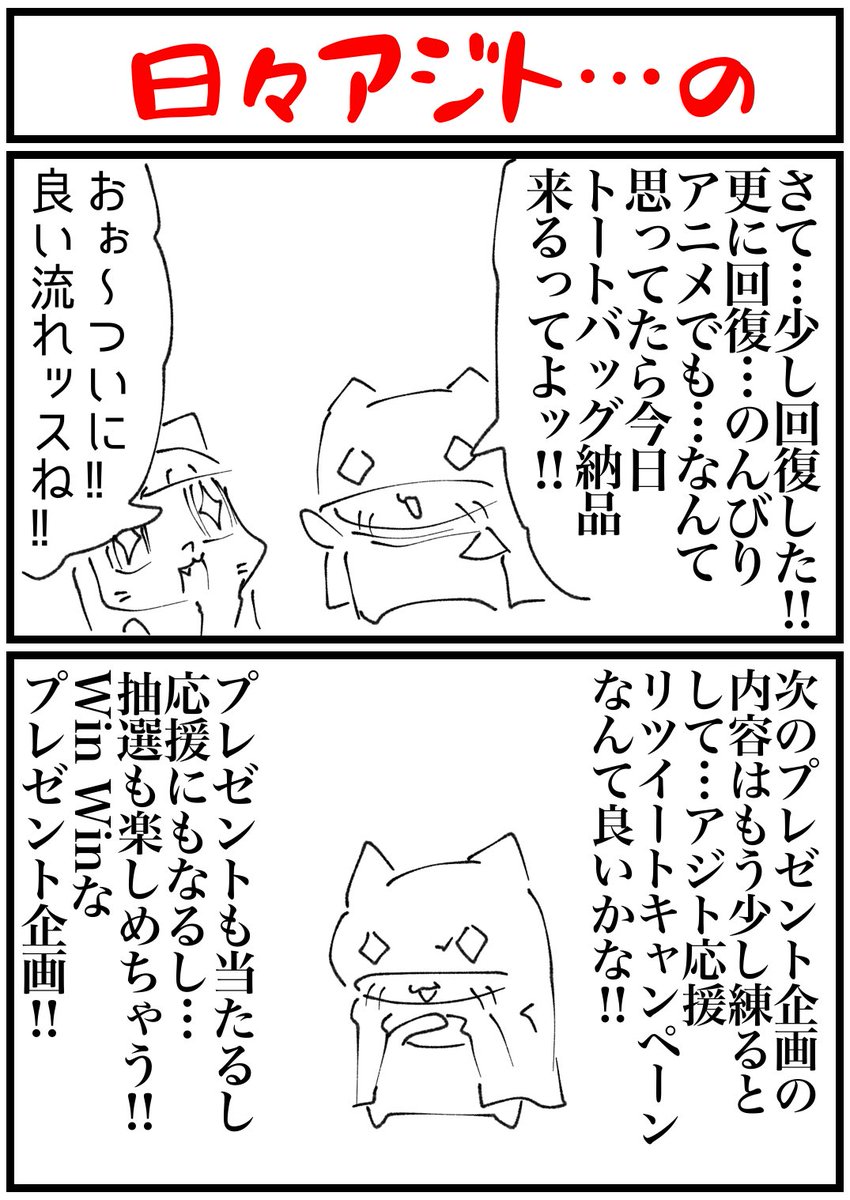 日々アジト…の
さて…少し回復した!!
更に回復…のんびり
アニメでも…なんて
思ってたら今日
トートバッグ納品
来るってよッ!!
おぉ～ついに!!
良い流れッスね!!
次のプレゼント企画の
内容はもう少し練ると
して…アジト応援
リツイートキャンペーン
なんて良いかな!!
プレゼントも当たるし
応援にもなるし…
抽選も楽しめちゃう!!
Win Winな
プレゼント企画!!